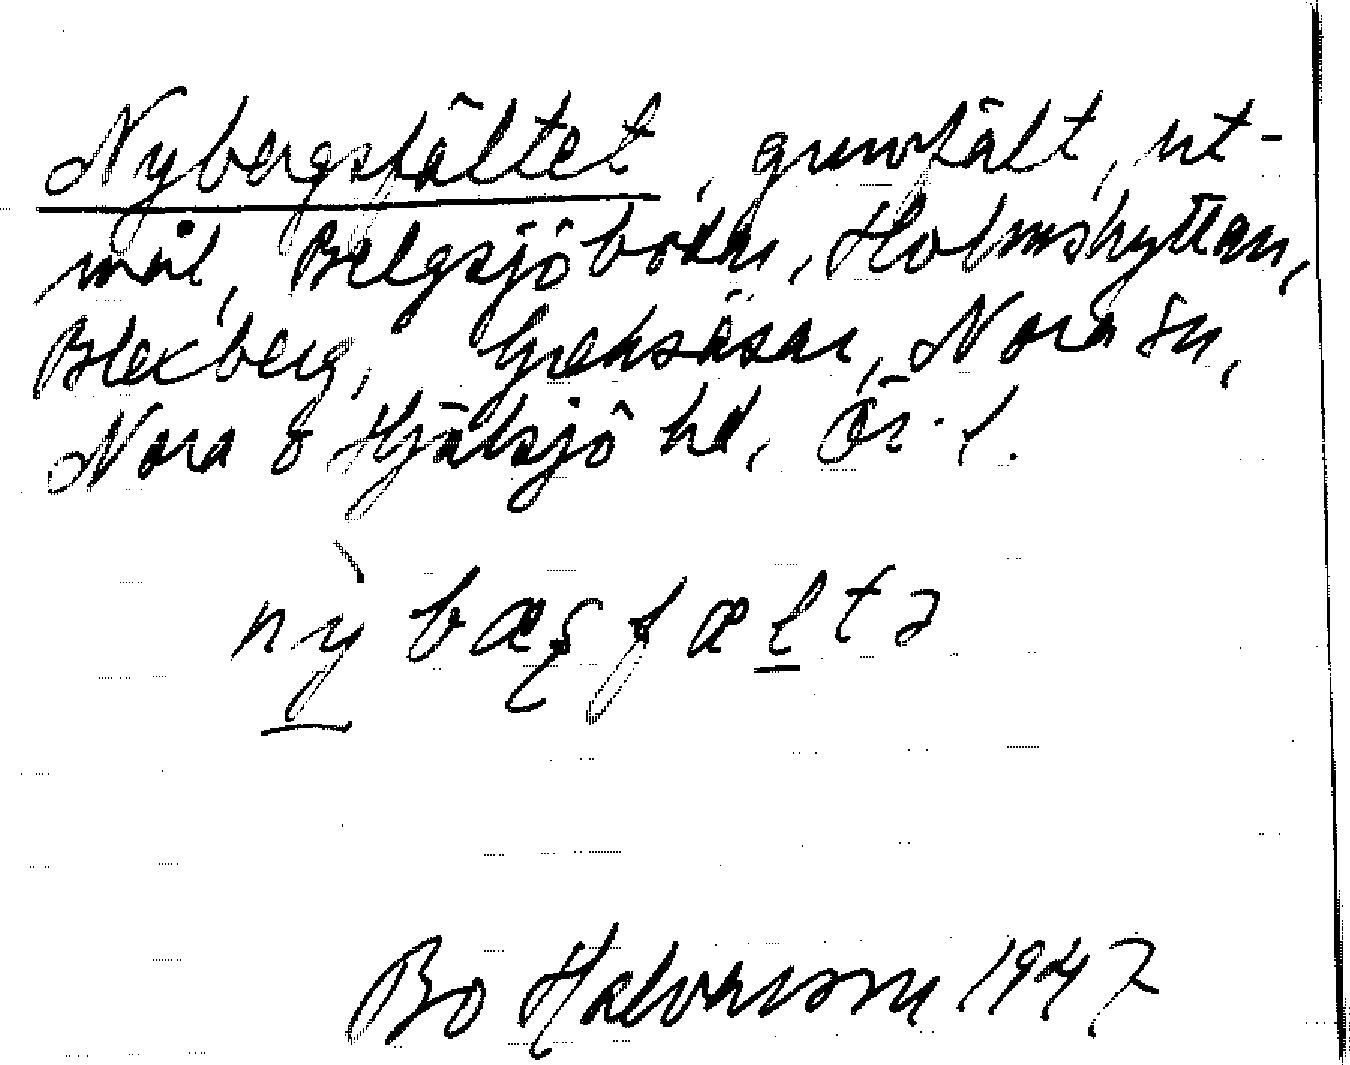 Nybergsfältet, gruvfält, ut-
mål, Belgsjöboden, Holmshyttan,
Blexberg, Greksåsar, Nora sn,
Nora o Hjulsjö hd, Ör. l.
nỳbæʂfæltə
Bo Halvarsson 1947